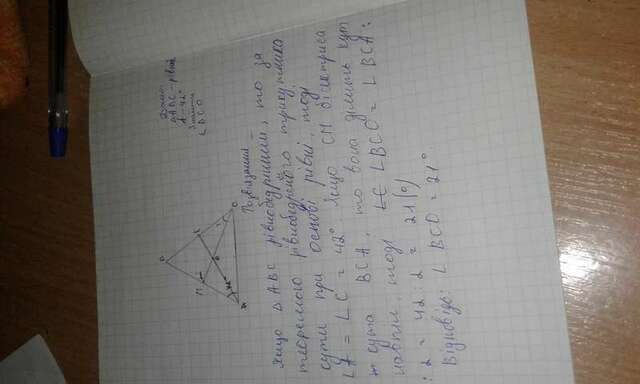 Дано:
△ABC - рівноб
A - 42°
Знайти
∠BCO
B
M
K
42°
O
A
C
Розв'язання
Якщо △ABC рівнобедренний, то за
теоремою рівнобедреного трикутника
кути при основі рівні, тоді
∠A = ∠C = 42°. Якщо CM бісектриса
кута BCA, то вона ділить кут
навпіл, тоді ∠BCO = ∠BCA :
: 2 = 42 : 2 = 21(°)
Відповідь: ∠BCO = 21°